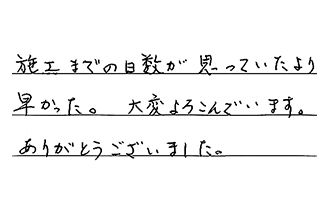 施工までの日数が思っていたより
早かった。 大変よろこんでいます。
ありがとうございました。